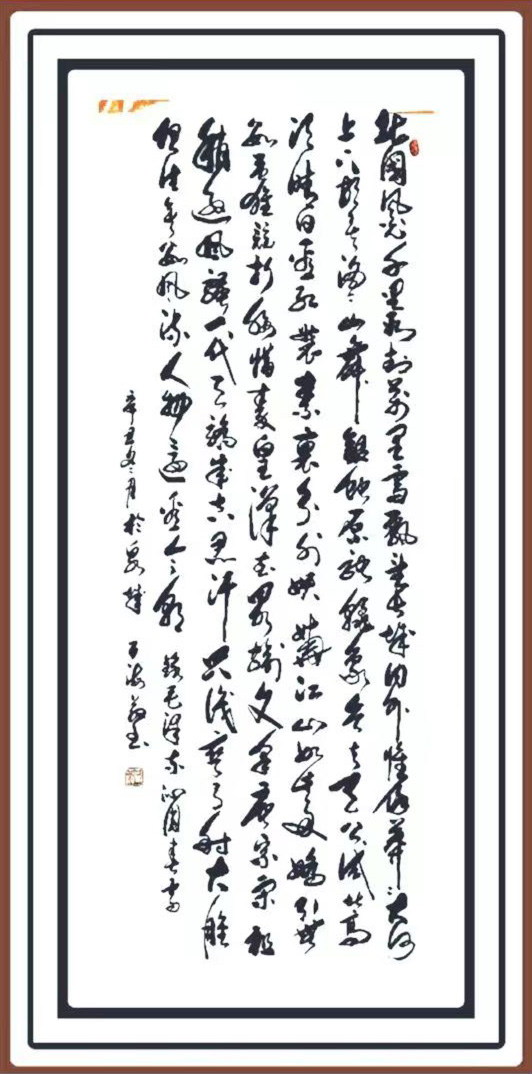 北國风光千里冰封萬里雪飘望长城内外惟余莽莽大河
上下顿失滔滔山舞银蛇原驰蜡象欲与天公试比高
须晴日看红装素裹分外妖娆江山如此多娇引無
数英雄竞折腰惜秦皇漢武略输文采唐宗宋祖
稍逊風骚一代天骄成吉思汗只识弯弓射大雕
俱往矣数風流人物还看今朝 錄毛泽东沁园春雪
辛丑冬月於泉城 王海